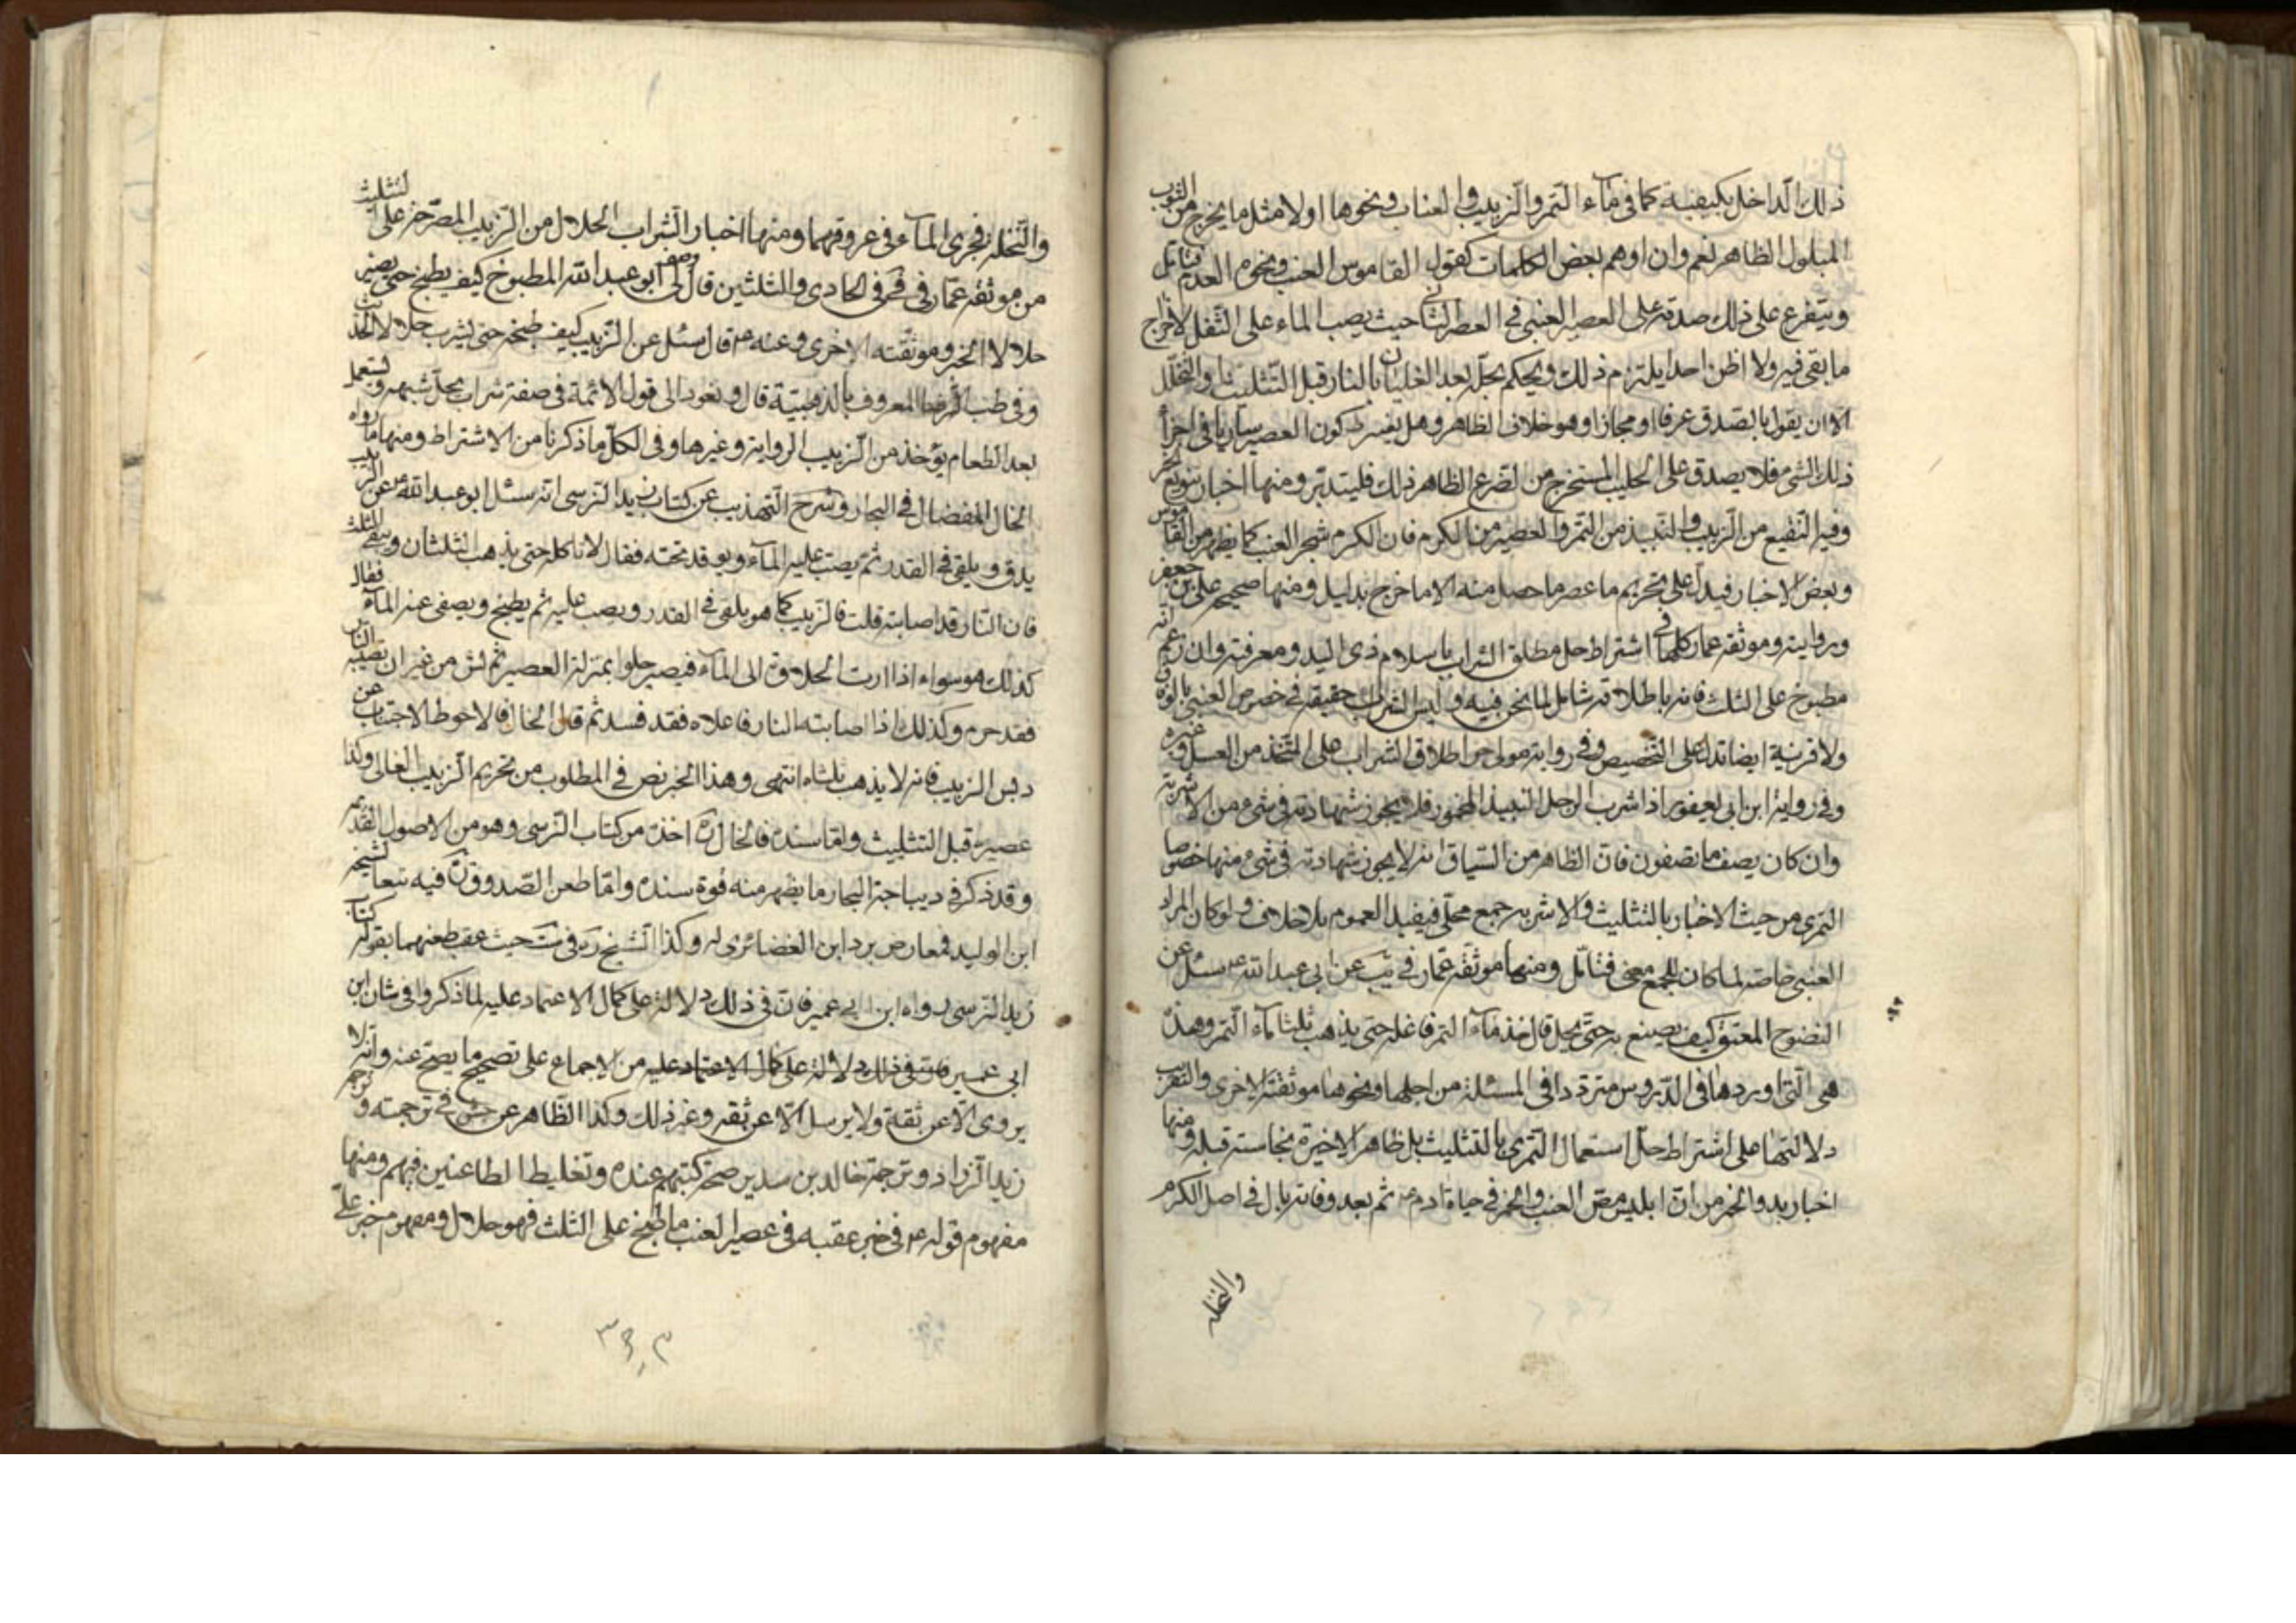 ذلك الداخل بكيفية كما فى ماء التمر والزبيب والعناب ونحوها اولا مثل ما يخرج من الثوب
المبلول الظاهر نعم وان اوهم بعض الكلمات كقول القاموس العنب ونحوه العدم فتامل
ويتفرع على ذلك صدقه على العصير العنبى فى العصر الثانى حيث يصب الماء على الثفل لاخراج
ما بقى فيه ولا اظن احدا يلتزم ذلك ويحكم بحله بعد الغليان بالنار قبل التثليث والتخلل
الا ان يقول بالصدق عرفا او مجازا وهو خلاف الظاهر وهل يشترط كون العصير ساريا فى اجزاء
ذلك الشىء فلا يصدق على الحليب المستخرج من الضرع الظاهر ذلك فليتدبر ومنها اخبار تنويع الخمر
وفيه النقيع من الزبيب والنبيذ من التمر والعصير من الكرم فان الكرم شجر العنب كما يظهر من القاموس
وبعض الاخبار فيدل على تحريم ما عصر ما حصل منه الا ما خرج بدليل ومنها صحيح على بن جعفر
وروايته وموثقة عمار كلها فى اشتراط حل مطلق الشراب باسلام ذى اليد ومعرفته وان زعم انه
مطبوخ على الثلث فانه باطلاقه شامل لما نحن فيه وليس الشراب حقيقة فى خصوص العنبى بالوفاق
ولا قرينة ايضا تدل على التخصيص وفى رواية مولى حر اطلاق الشراب على المتخذ من العسل وغيره
وفى رواية ابن ابى يعفور اذا شرب الرجل النبيذ المخمور فلا يجوز شهادته فى شىء من الاشربة
وان كان يصف ما تصفون فان الظاهر من السياق انه لا يجوز شهادته فى شىء منها خصوصا
التمرى من حيث الاخبار بالتثليث والاشربة جمع محلى فيفيد العموم بلا خلاف ولو كان المراد
العنبى خاصة لما كان للجمع معنى فتامل ومنها موثقة عمار فى يب عن ابى عبد الله ع سئل عن
النضوح المعتق كيف يصنع به حتى يحل قال خذ ماء التمر فاغله حتى يذهب ثلثا ماء التمر وهذه
هى التى اوردها فى الدروس مترددا فى المسئلة من اجلها ونحوها موثقته الاخرى والتقريب
دلالتها على اشتراط حل استعمال التمرى بالتثليث بل ظاهر الاخيرة نجاسته قبله ومنها
اخبار بدو الخمر من ان ابليس مص العنب والخمر فى حياة ادم ع ثم بعد وفاته بال فى اصل الكرم
والنخلة
والنخلة فجرى الماء فى عروقهما ومنها اخبار الشراب الحلال من الزبيب المصرحة على التثليث
من موثقة عمار فى فى الحادى والثلثين قال وصف لى ابو عبد الله المطبوخ كيف يطبخ حتى يصير
حلالا الخبر وموثقته الاخرى وعنه ع قال سئل عن الزبيب كيف طبخه حتى يشرب حلالا الحديث
وفى طب الرضا المعروف بالذهبية قال ونعود الى قول الائمة فى صفة شراب يحل شربه ويستعمل
بعد الطعام يؤخذ من الزبيب الرواية وغيرها وفى الكل ما ذكرنا من الاشتراط ومنها ما رواه
الخال المفضال فى البحار وشرح التهذيب عن كتاب زيد النرسى انه سئل ابو عبد الله ع عن الزبيب
يدق ويلقى فى القدر ثم يصب عليه الماء ويوقد تحته فقال لا تاكله حتى يذهب الثلثان ويبقى الثلث
فان النار قد اصابته قلت فالزبيب كما هو يلقى فى القدر ويصب عليه ثم يطبخ ويصفى عنه الماء فقال
كذلك هو سواء اذا ادت الحلاوة الى الماء فيصير حلوا بمنزلة العصير ثم نش من غير ان تصيبه النار
فقد حرم وكذلك اذا اصابته النار فاغلاه فقد فسد ثم قال الخال فالاحوط الاجتناب عن
دبس الزبيب فانه لا يذهب ثلثاه انتهى وهذا الخبر نص فى المطلوب من تحريم الزبيب الغالى وكذا
عصيره قبل التثليث واما سنده فالخال ره اخذه من كتاب النرسى وهو من الاصول القديمة
وقد ذكر فى ديباجة البحار ما يظهر منه قوة سنده واما طعن الصدوق ره فيه تبعا لشيخه
ابن الوليد فمعارض برد ابن الغضائرى له وكذا الشيخ ره فى ست حيث عقب طعنهما بقوله كتاب
زيد النرسى رواه ابن ابى عمير فان فى ذلك دلالة على كمال الاعتماد عليه لما ذكروا فى شان ابن
ابى عمير فان فى ذلك دلالة على كمال الاعتماد عليه من الاجماع على تصحيح ما يصح عنه وانه لا
يروى الا عن ثقة ولا يرسل الا عن ثقة وغير ذلك وكذا الظاهر عن جش فى ترجمته وترجمة
زيد الزراد وترجمة خالد بن سدير صحة كتبهم عنده وتغليط الطاعنين فيهم ومنها
مفهوم قوله ع فى خبر عقبه فى عصير العنب ما طبخ على الثلث فهو حلال ومفهوم خبر على